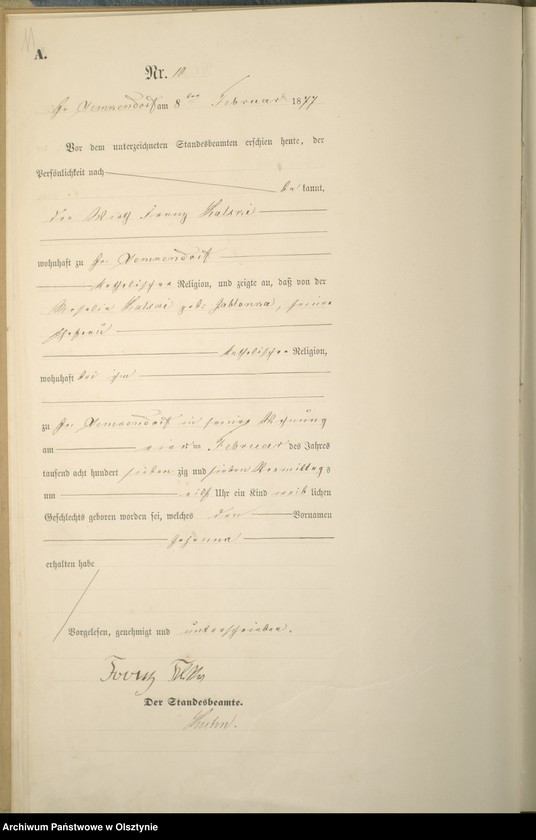 A.
Nr. 10
Gr Lemkendorf am 8ten Februar 1877
Vor dem unterzeichneten Standesbeamten erschien heute, der
Persönlichkeit nach
be kannt,
der Wirth Franz
wohnhaft zu Gr Lemkendorf
katholischer Religion, und zeigte an, daß von der
geb: Jablonka, seiner
Ehefrau
katholischer Religion,
wohnhaft bei ihm
zu Gr Lemkendorf in seiner Wohnung
am ten Februar des Jahres
tausend acht hundert sieben zig und sieben Vormittags
um elf Uhr ein Kind weib lichen
Geschlechts geboren worden sei, welches den Vornamen
Johanna
erhalten habe
Vorgelesen, genehmigt und unterschrieben.
Der Standesbeamte.
Archiwum Państwowe w Olsztynie